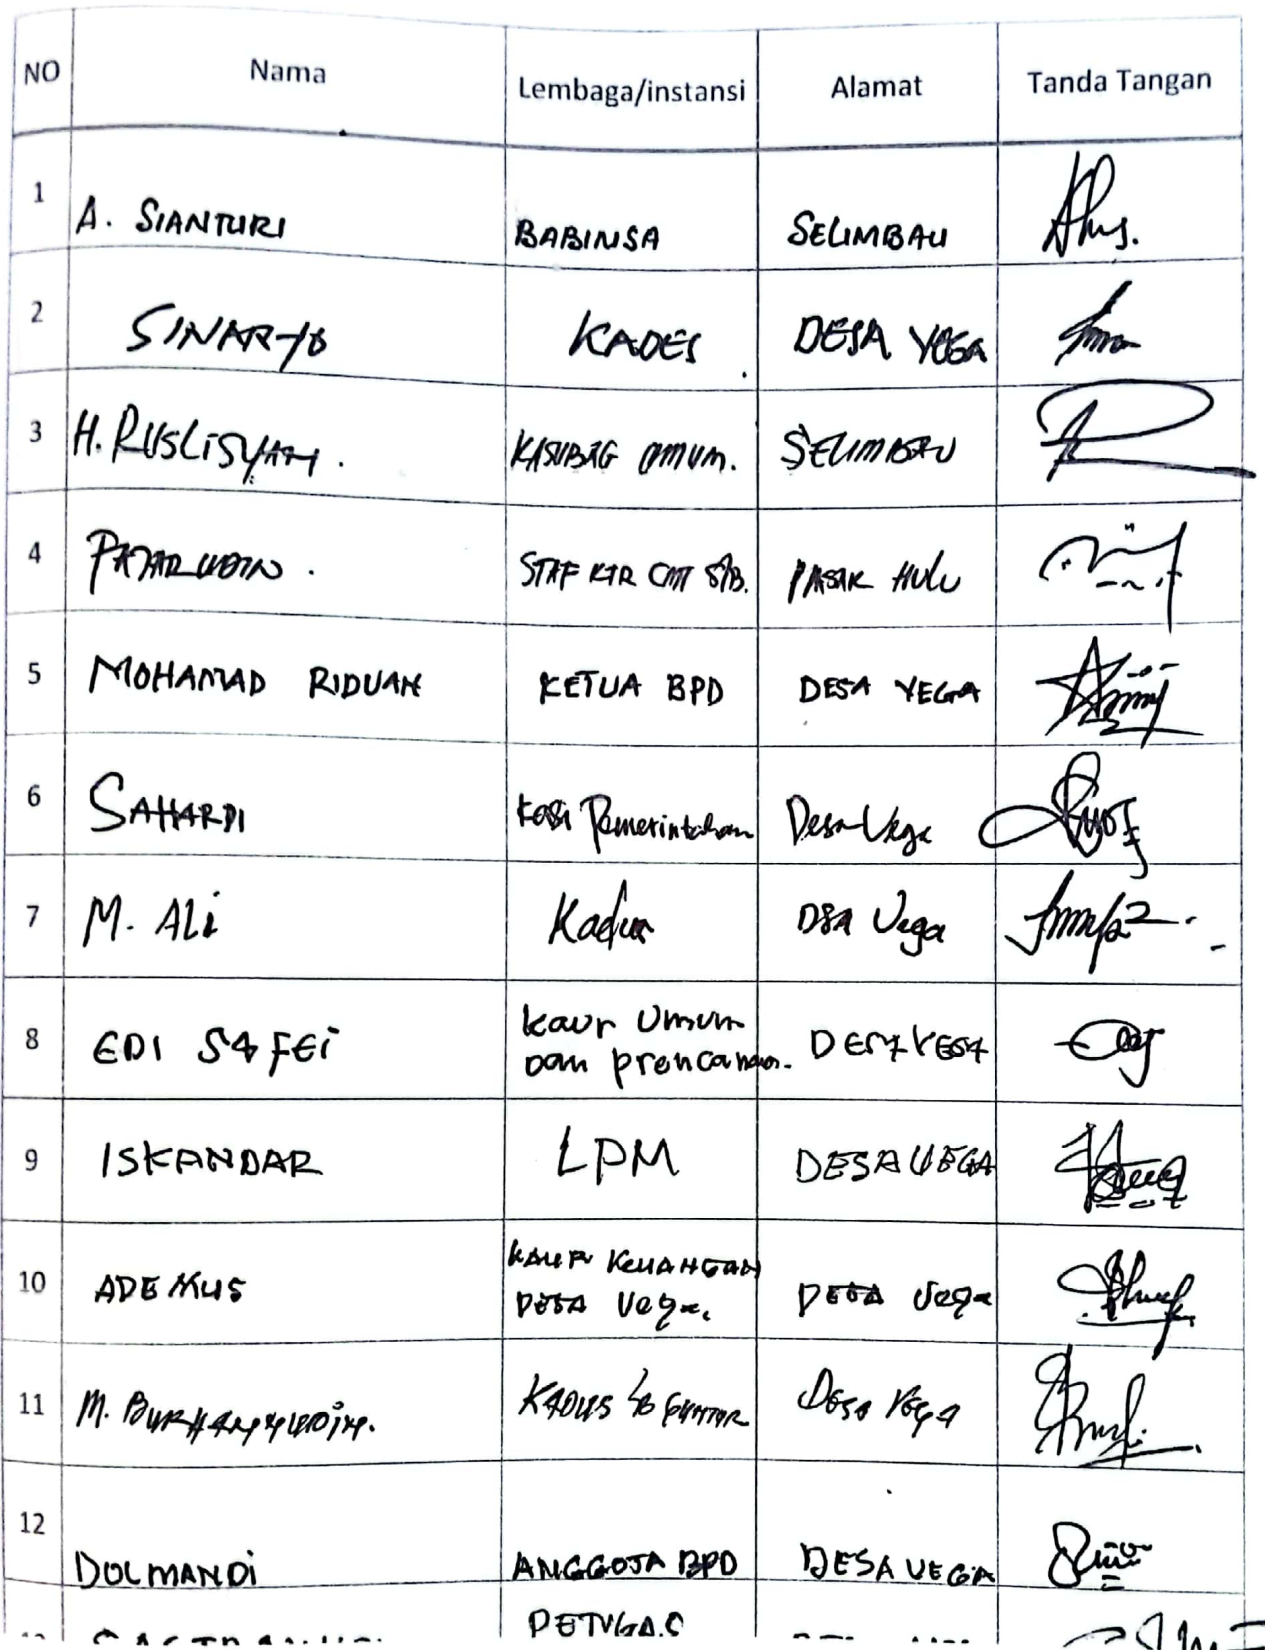 NO Nama Lembaga/instansi Alamat Tanda Tangan
1 A. SIANTURI BABINSA SELIMBAU
2 SINARYO KADES DESA VEGA
3 H. RUSLISYAH. KASUBAG UMUM. SELIMBAU
4 PAJARUDIN. STAF KTR CMT SLB. PASAK HULU
5 MOHAMAD RIDUAN KETUA BPD DESA VEGA
6 SAHARDI Kasi Pemerintahan Desa Vega
7 M. ALi Kadus DSA Vega
8 EDI SAFEi Kaur Umum DESA VEGA
dan prencanaan.
9 ISKANDAR LPM DESA VEGA
10 ADE MUS KAUR KEUANGAN DESA Vega
DESA Vega.
11 M. BURHANNUDiN. KADUS Desa Vega
12 DOLMANDi ANGGOTA BPD DESA VEGA
PETUGAS